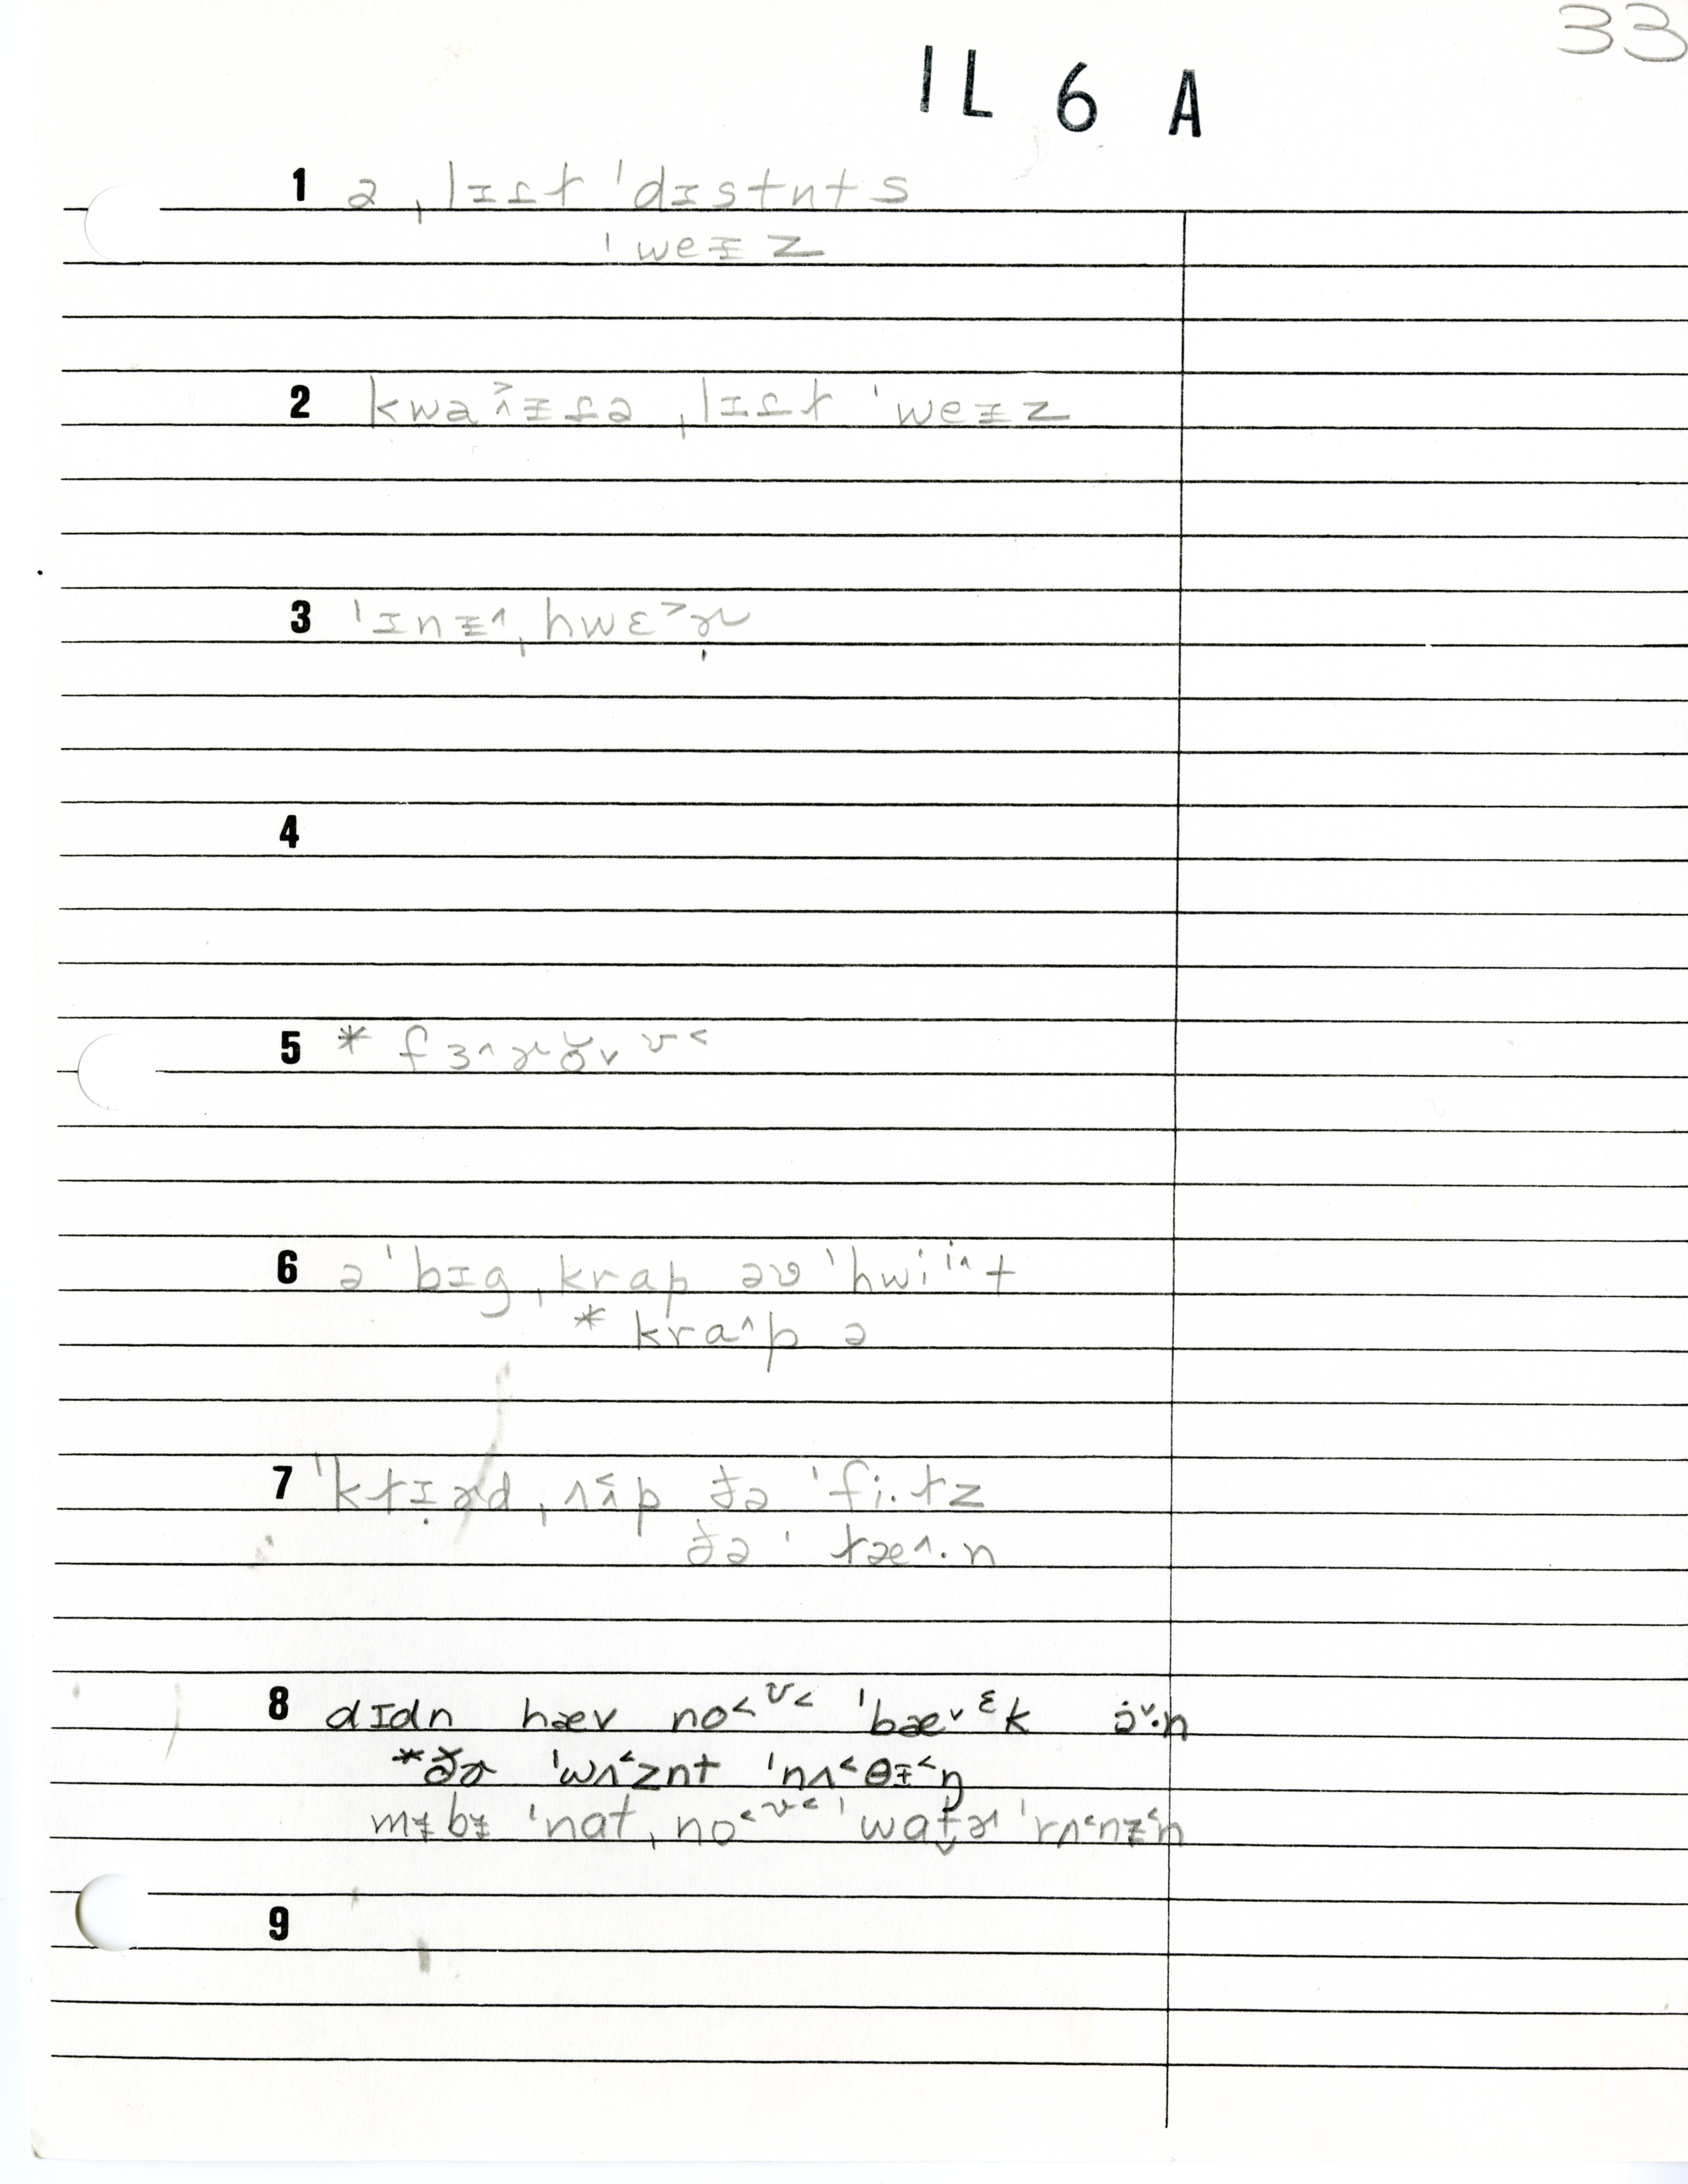 33
1L 6 A
1 ə ˌlɪɾɫ ˈdɪstnts
ˈweɪz
2 kwa^>ᵻɾə ˌlɪɾɫ ˈweɪz
3 ˈɪnᵻ^ ˌhwɛ>ɚ̣
4
5 * fɜ^ɚŏv ʊ<
6 ə ˈbɪg ˌkrap əʋ ˈhwi ⁱ^t
* kra^p ə
7 ˈkɫɪ̣ɚd ˌʌ<^p ðə ˈfi.ɫz
ðə ˈɫæ^.n
8 dɪdn hæv no<ʊ< ˈbævᵋk ə̇ˇ.n
*ðɚ ˈwʌ<znt ˈnʌ<θᵻ<ŋ
mᵻbᵻ ˈnat ˌno<ʊ< ˈwat̬ɚ ˈrʌ<nᵻ<n
9